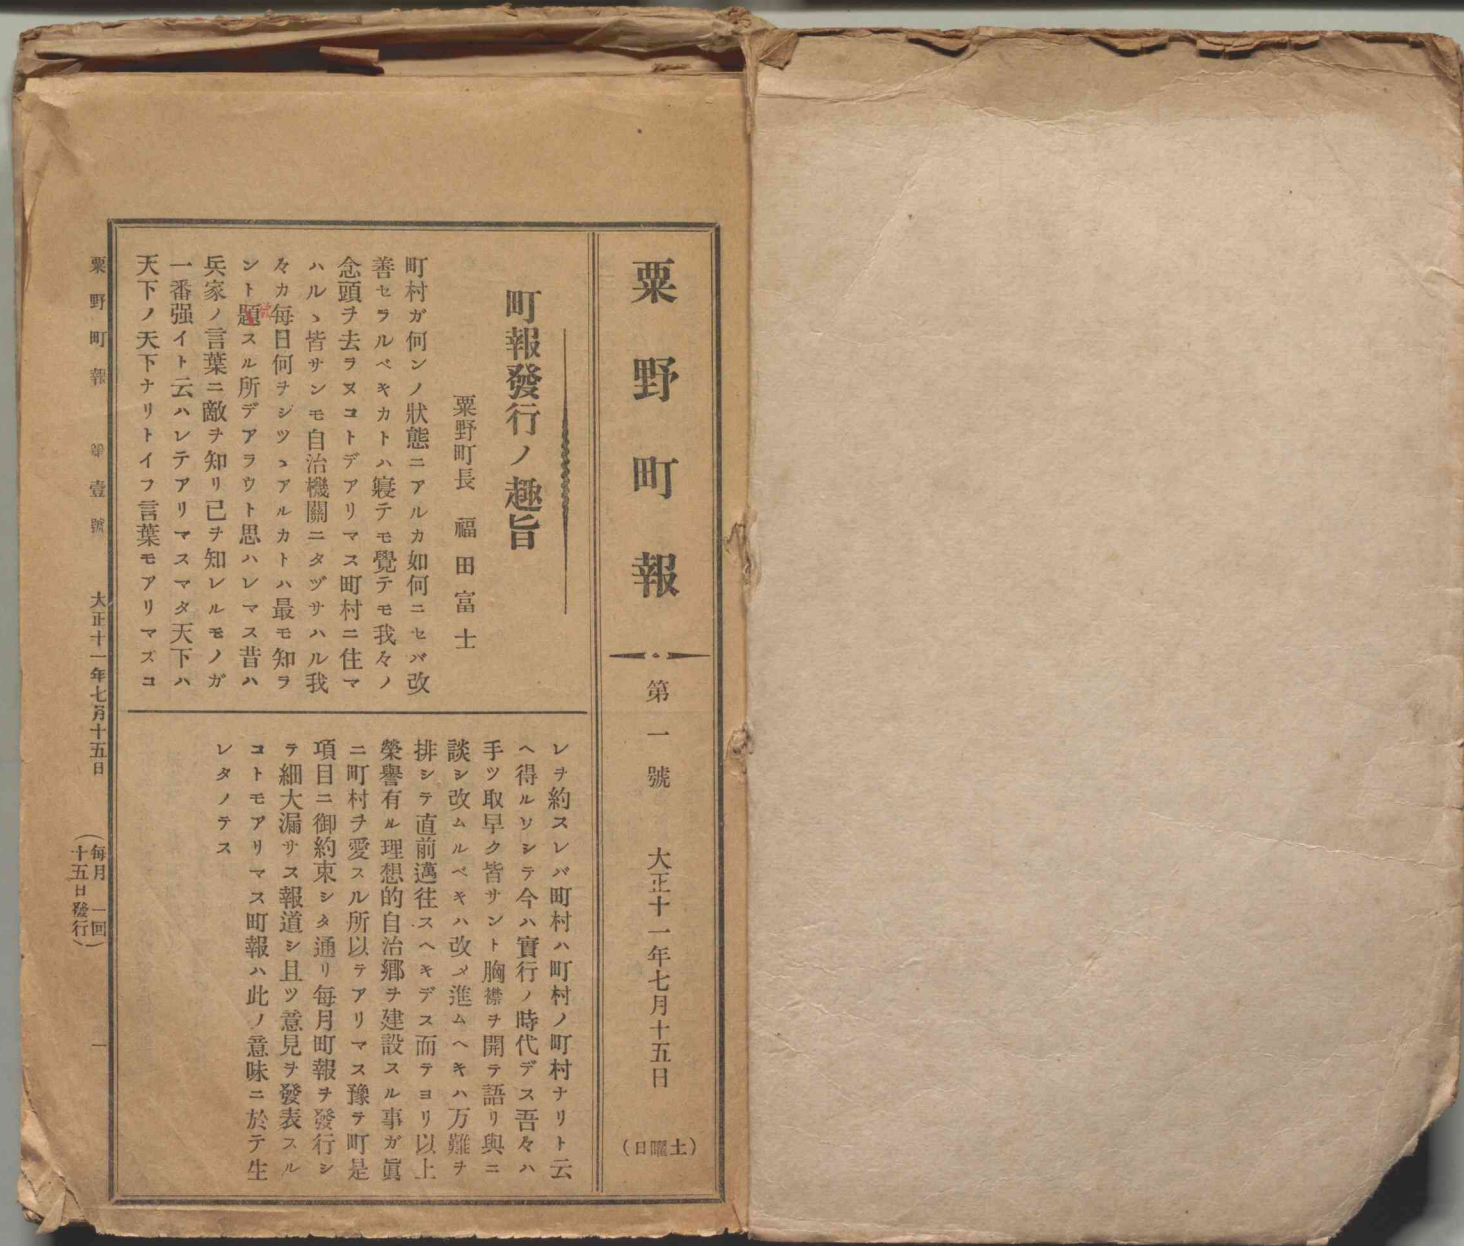 粟野町報
第一號
大正十一年七月十五日
(土曜日)
町報發行ノ趣旨
粟野町長 福田富士
町村ガ何ンノ狀態ニアルカ如何ニセバ改
善セラルベキカトハ寢テモ覺テモ我々ノ
念頭ヲ去ラヌコトデアリマス町村ニ住マ
ハルヽ皆サンモ自治機關ニタヅサハル我
々カ每日何ヲシツヽアルカトハ最モ知ラ
ント題スル所デアラウト思ハレマス昔ハ
兵家ノ言葉ニ敵ヲ知リ已ヲ知レルモノガ
一番强イト云ハレテアリマスマタ天下ハ
天下ノ天下ナリトイフ言葉モアリマズコ
レヲ約スレバ町村ハ町村ノ町村ナリト云
ヘ得ルソシテ今ハ實行ノ時代デス吾々ハ
手ツ取早ク皆サント胸襟ヲ開テ語リ與ニ
談シ改ムルベキハ改メ進ムヘキハ万難ヲ
排シテ直前邁往スヘキデス而テヨリ以上
榮譽有ル理想的自治鄕ヲ建設スル事ガ眞
ニ町村ヲ愛スル所以テアリマス豫テ町是
項目ニ御約束シタ通リ每月町報ヲ發行シ
テ細大漏サス報道シ且ツ意見ヲ發表スル
コトモアリマス町報ハ此ノ意味ニ於テ生
レタノテス
粟野町報 第壹號 大正十一年七月十五日 (每月一回十五日發行) 一